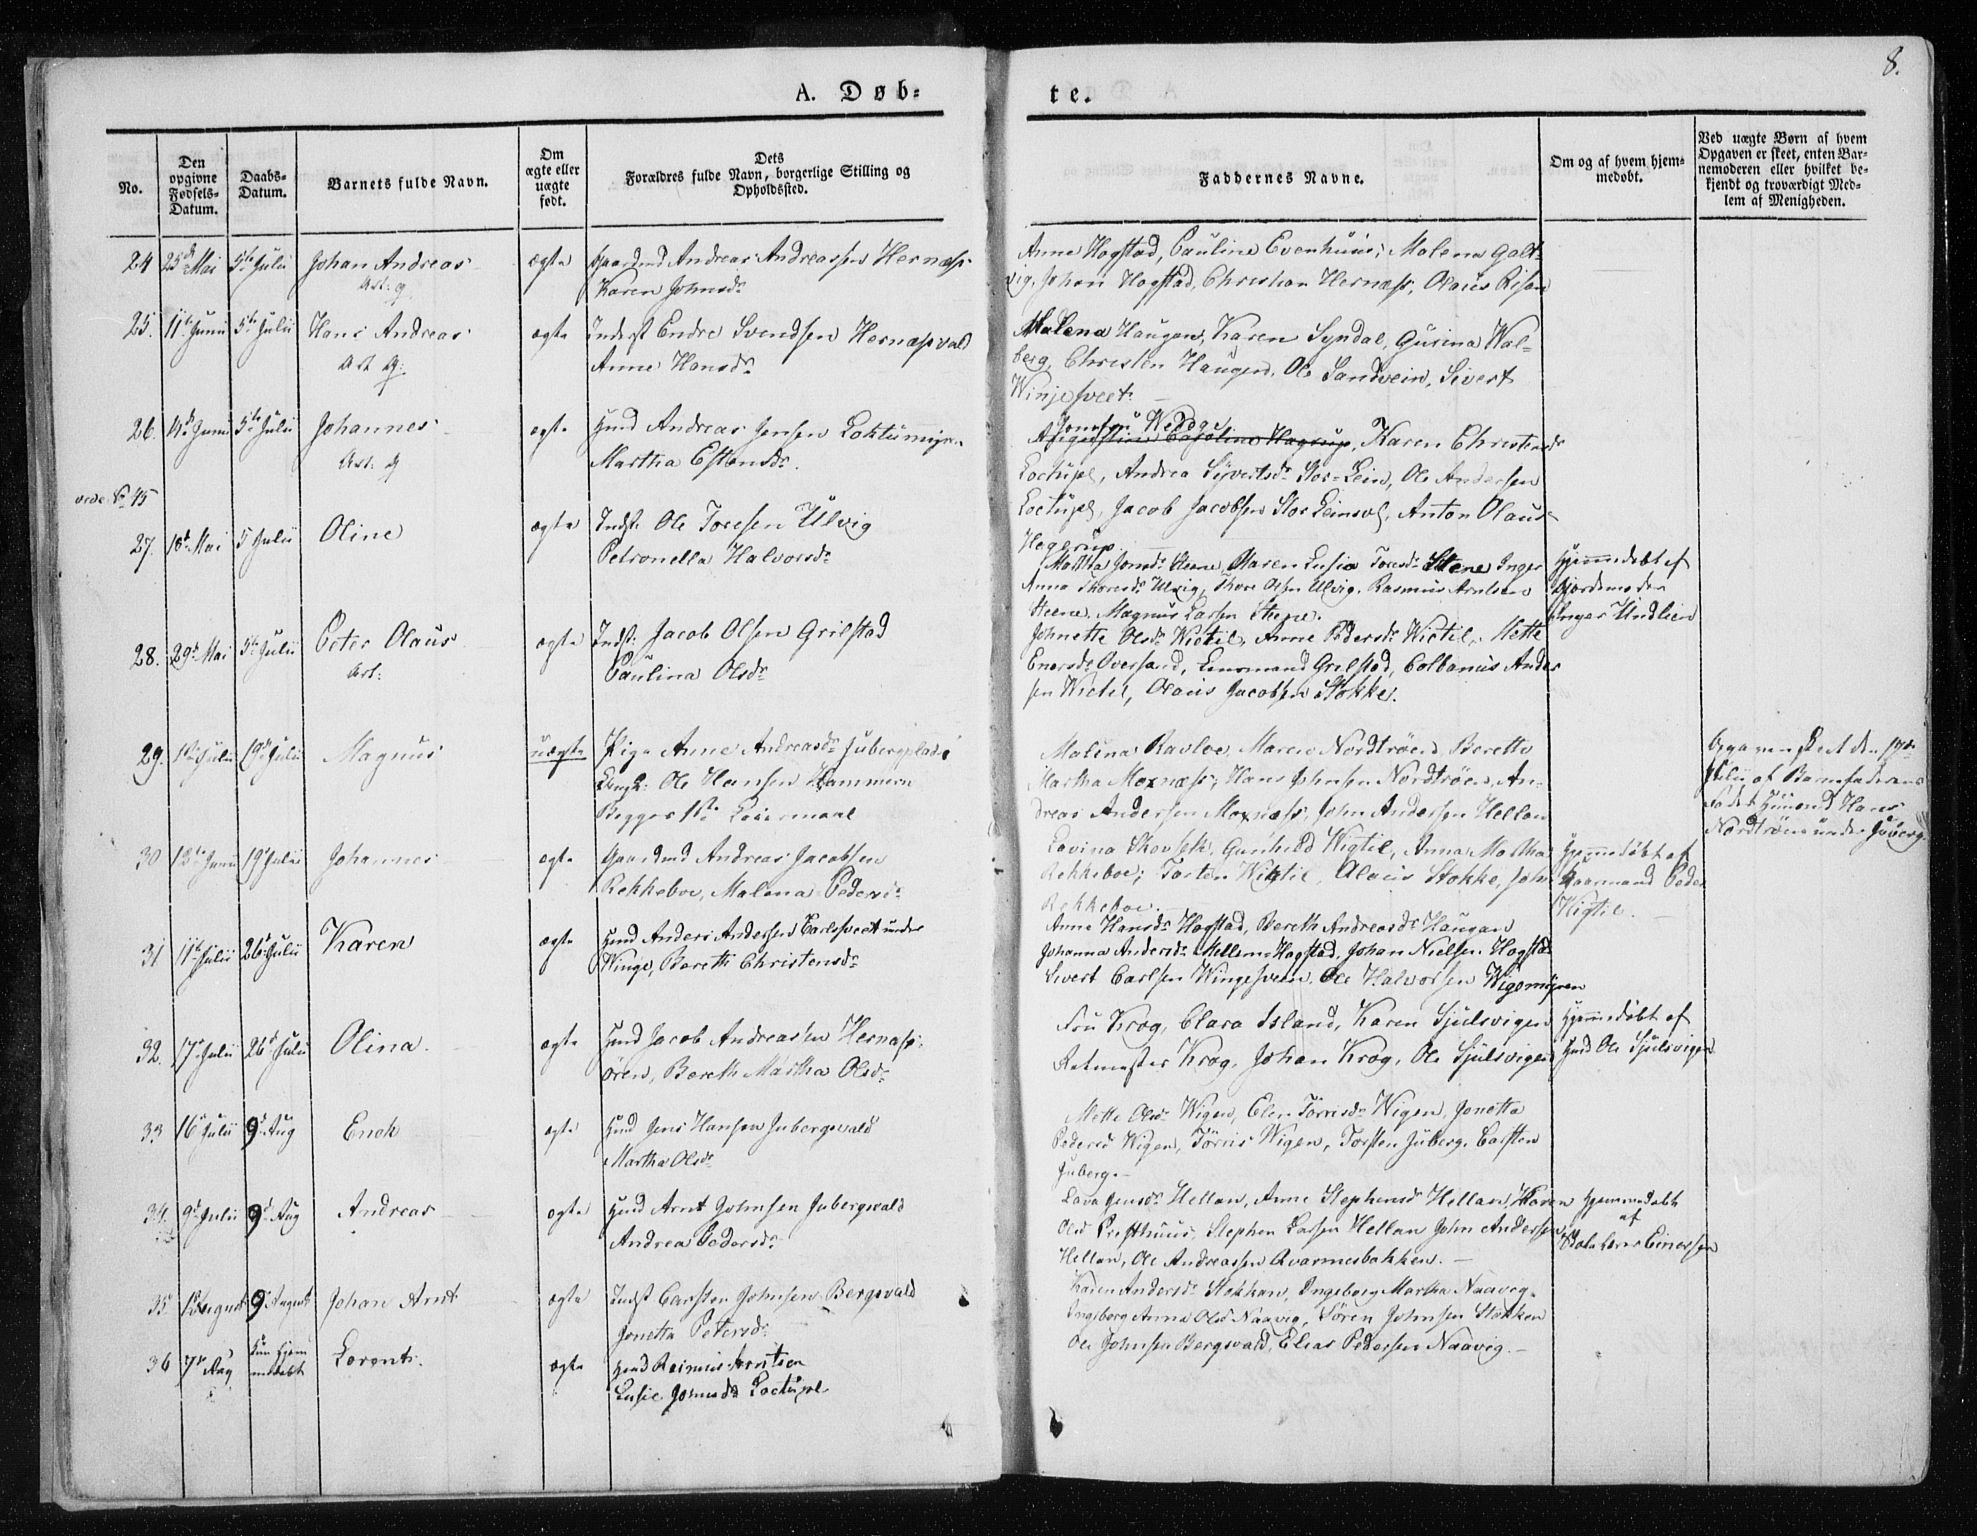 8.
A. Døb-
te.
No.
Den opgivne Fødsels-Datum.
Daabs-Datum.
Barnets fulde Navn.
Om ægte eller uægte født.
Dets Forældres fulde Navn, borgerlige Stilling og Opholdssted.
Faddernes Navne.
Om og af hvem hjem-medøbt.
Ved uægte Børn af hvem Opgaven er skeet, enten Bar-nemoderen eller hvilket be-kjendt og troværdigt Med-lem af Menigheden.
24 25de Mai 5te Julii Johan Andreas ægte Gaardmd Andreas Andreassen Hernæss
Karen Johnsdr
Anne Hogstad, Pauline Evenhuus, Malena
Johan Hogstad, Christian Hernæss, Olaus
25. 11te Junii 5te Julii Hans Andreas ægte Inderst Endre Svendsen Hernæssvald
Anne Hansdr
Malena Haugan, Karen Syndal, Gurina Wal-
berg, Christen Haugen, Ole Sandvein, Sivert
Winjesveet
26. 4de Junii 5te Julii Johannes ægte Huusmd Andreas Jensen
Martha Estensdr.
Karen Christensdr
Andrea Sivertsdr Stor-Lein, Ole Andersen
Jacob Jacobsen Anton Olaus
Hegerup
vide No 45
27. 18de Mai 5 Julii Oline ægte Indst Ole Toresen Ulvig
Petronella Halvorsdr
Maren Lusia Toresdr Steene Inger
Anna Thoresdr Ulvig, Thore Olsen Ulvig, Rasmus Arntsen
Steene, Magnus Larsen Steene.
Hjemmedøbt af
Gjordemoder
Inger Undlien
28. 29de Mai 5te Julii Peter Olaus ægte Indst. Jacob Olsen Grilstad
Paulina Olsdr
Johnette Olsdr Wictil, Anne Pedersdr Wictil, Mette
Enersdr Oversand, Grilstad, Colbanus Ander
sen Wictil, Olaus Jacobsen Stokke.
29. 1ste Julii 19de Julii Magnus uægte Pige Anne Andreasdr Jubergplads
Ungk: Ole Hansen Hammeren
Begges 1ste Leiermaal
Malina Ravloe, Maren Nordtrøen, Berette
Martha Moxnæss, Hans Johnsen Nordtrøen, An-
dreas Andersen Moxnæss, John Andersen Hellan
Opgaven skeet den 19de
Julii af Barnefaderens
Fader Huusmd Hans
Nordtrøen under Juberg
30 13de Junii 19de Julii Johannes ægte Gaardmd Andreas Jacobsen
Rekkeboe, Malena Pedersdr
Lovina Skovseth, Gunhild Wigtil, Anna Martha
Rekkeboe, Torten Wigtil, Olaus Stokke, John
Rekkeboe.
Hjemmedøbt af
Gaarmand Peder
Wigtil.
31 11te Julii 26de Julii Karen ægte Huusmd Anders Andersen Carlsveet under
Winge, Bereth Christensdr
Anne Hansdr Hogstad, Bereth Andreasdr Haugan
Johanna Andersdr Mellem-Hogstad, Johan Nielsen Hogstad
Sivert Carlsen Wingesveen, Ole Halvorsen Wigemyren
32. 17de Julii 26de Julii Olina ægte Huusmd Jacob Andreassen Hernæss-
ören, Bereth Martha Olsdr
Fru Krog, Clara Island, Karen Sjulsvigen
Ratmester Krog, Johan Krog, Ole Sjulsvigen
Hjemmedøbt af
Huusmd Ole Sjulsvigen
33 16de Julii 9de Aug Enok ægte Huusmd Jens Hansen Jubergsvald
Martha Olsdr
Mette Olsdr Wigen, Elen Törrisdr Wigen, Jonetta
Pedersd Wigen, Törris Wigen, Torsten Juberg, Carsten
Juberg.
34. 9de Julii 9de Aug Andreas ægte Huusmd Arnt Johnsen Jubergsvald
Andrea Pedersdr
Lava Jensdr Hellan, Anne Stephensdr Hellan, Karen
Olsd Presthuus, Stephen Larsen Hellan John Andersen
Hellan, Ole Andreassen Qvarmesbakken.
Hjemmedøbt
af
Einersen
35 1 August 9de August Johan Arnt ægte Indst Carsten Johnsen Bergsvald
Jonetta Petersdr
Karen Andersdr Stokkan, Ingeborg Martha Naavig,
Ingeborg Anna Olsd Naavig, Sören Johnsen Stokken
Ole Johnsen Bergsvald, Elias Pedersen Naavig.
36 7de Aug kun hjem
medøbt Lorents. ægte Huusmd Rasmus Arntsen
Lusie Jonsdr